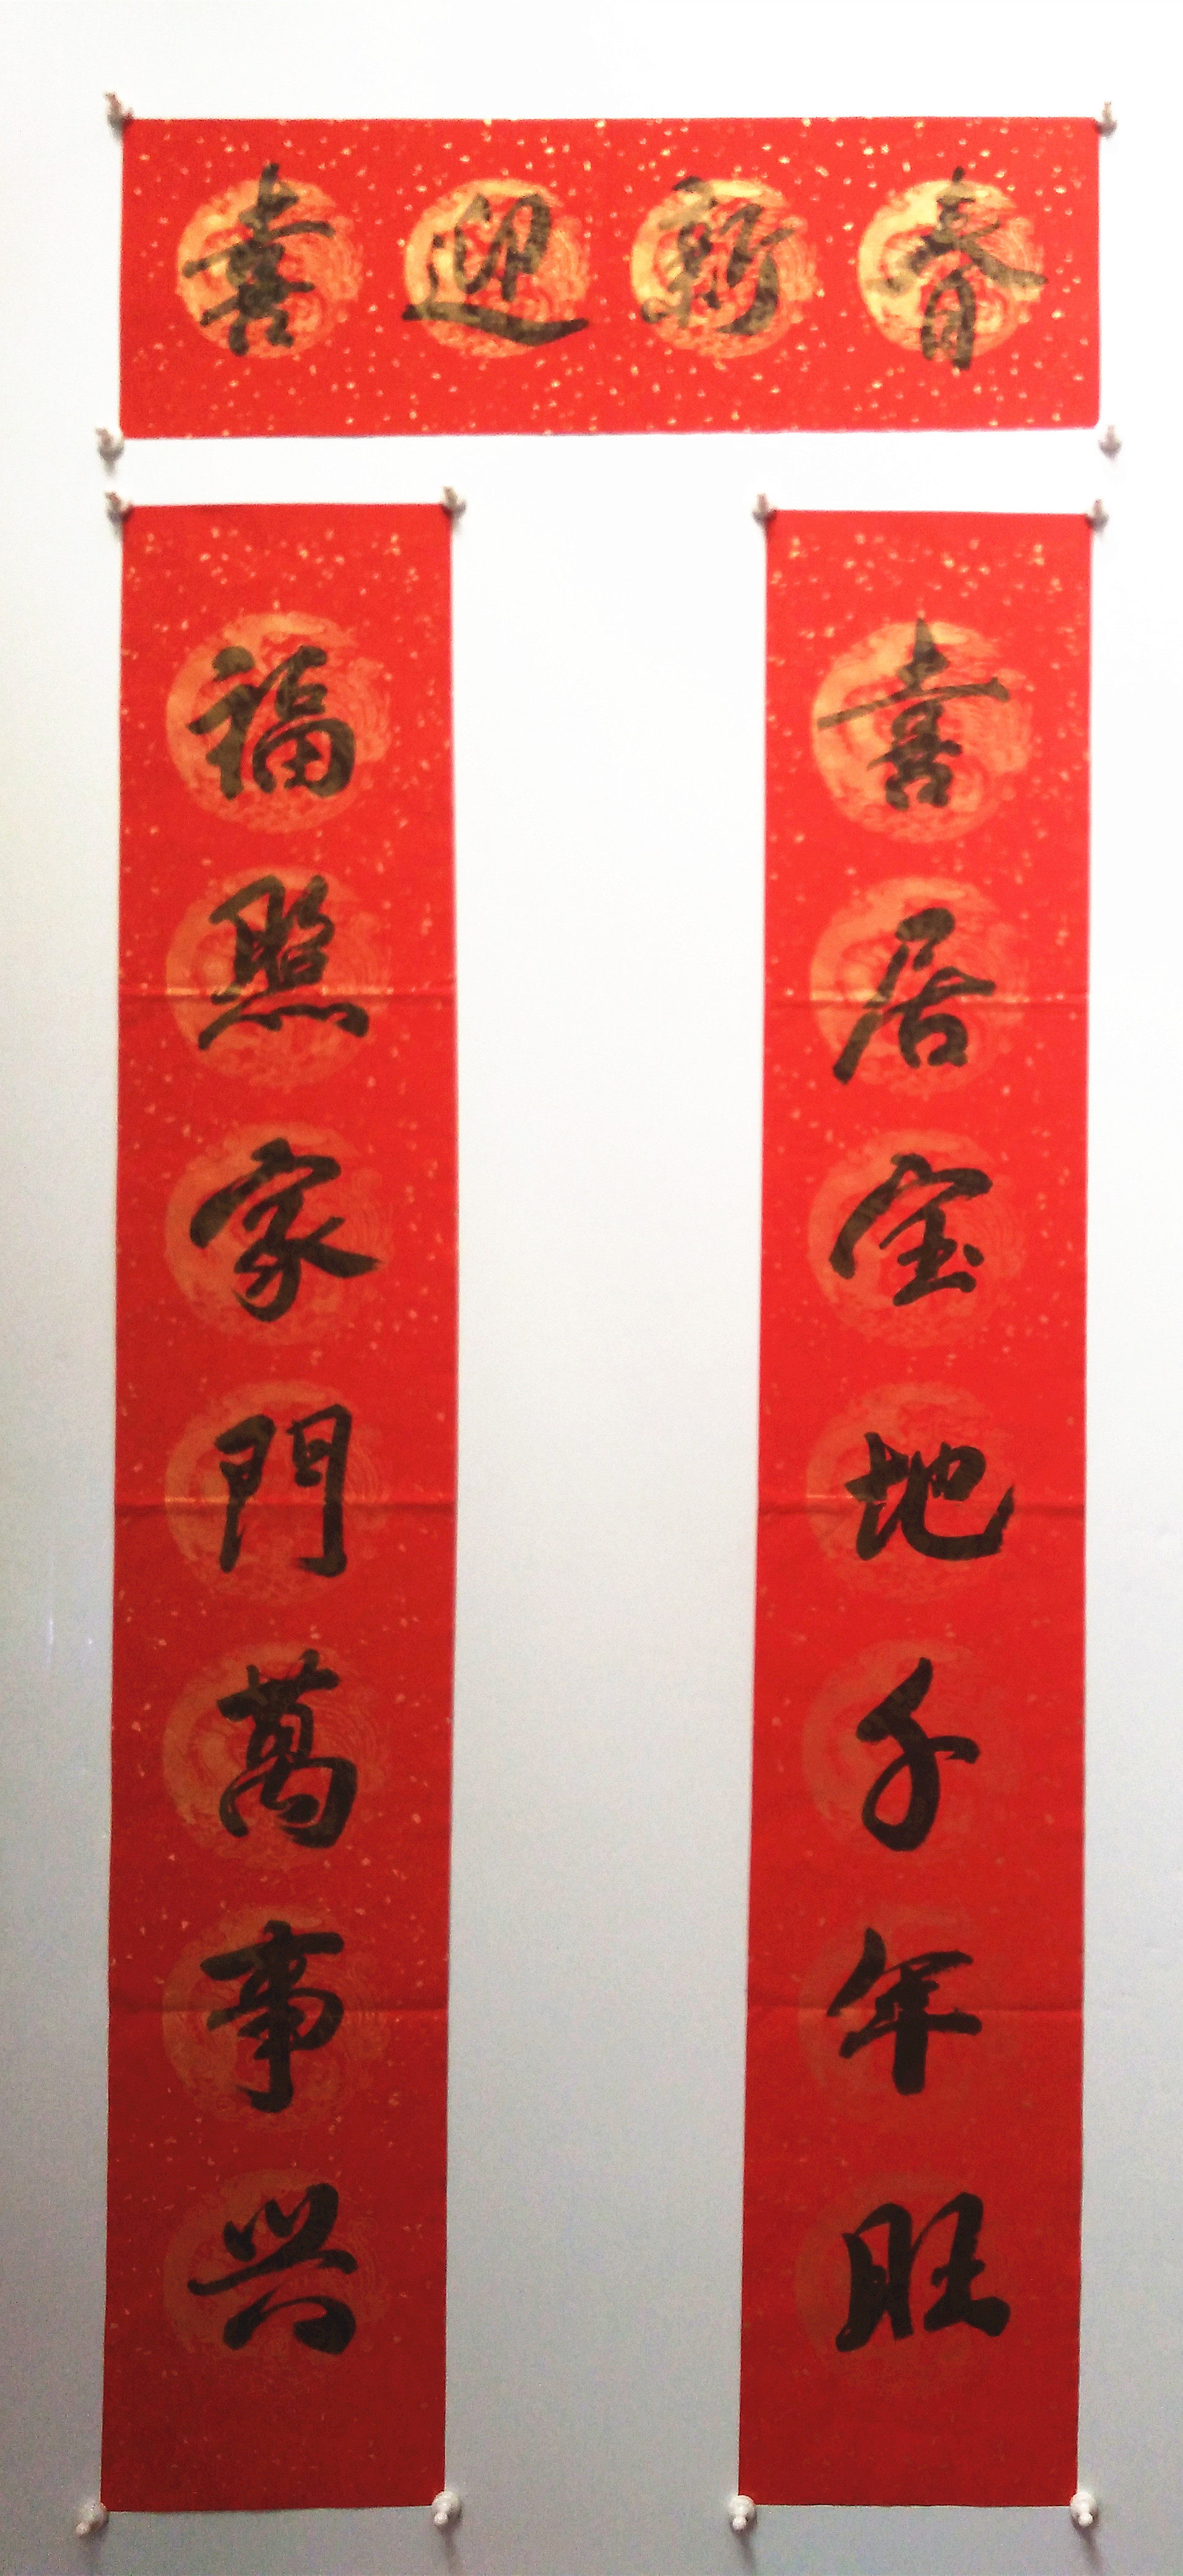 喜迎新春
喜居宝地千年旺
福照家門萬事兴